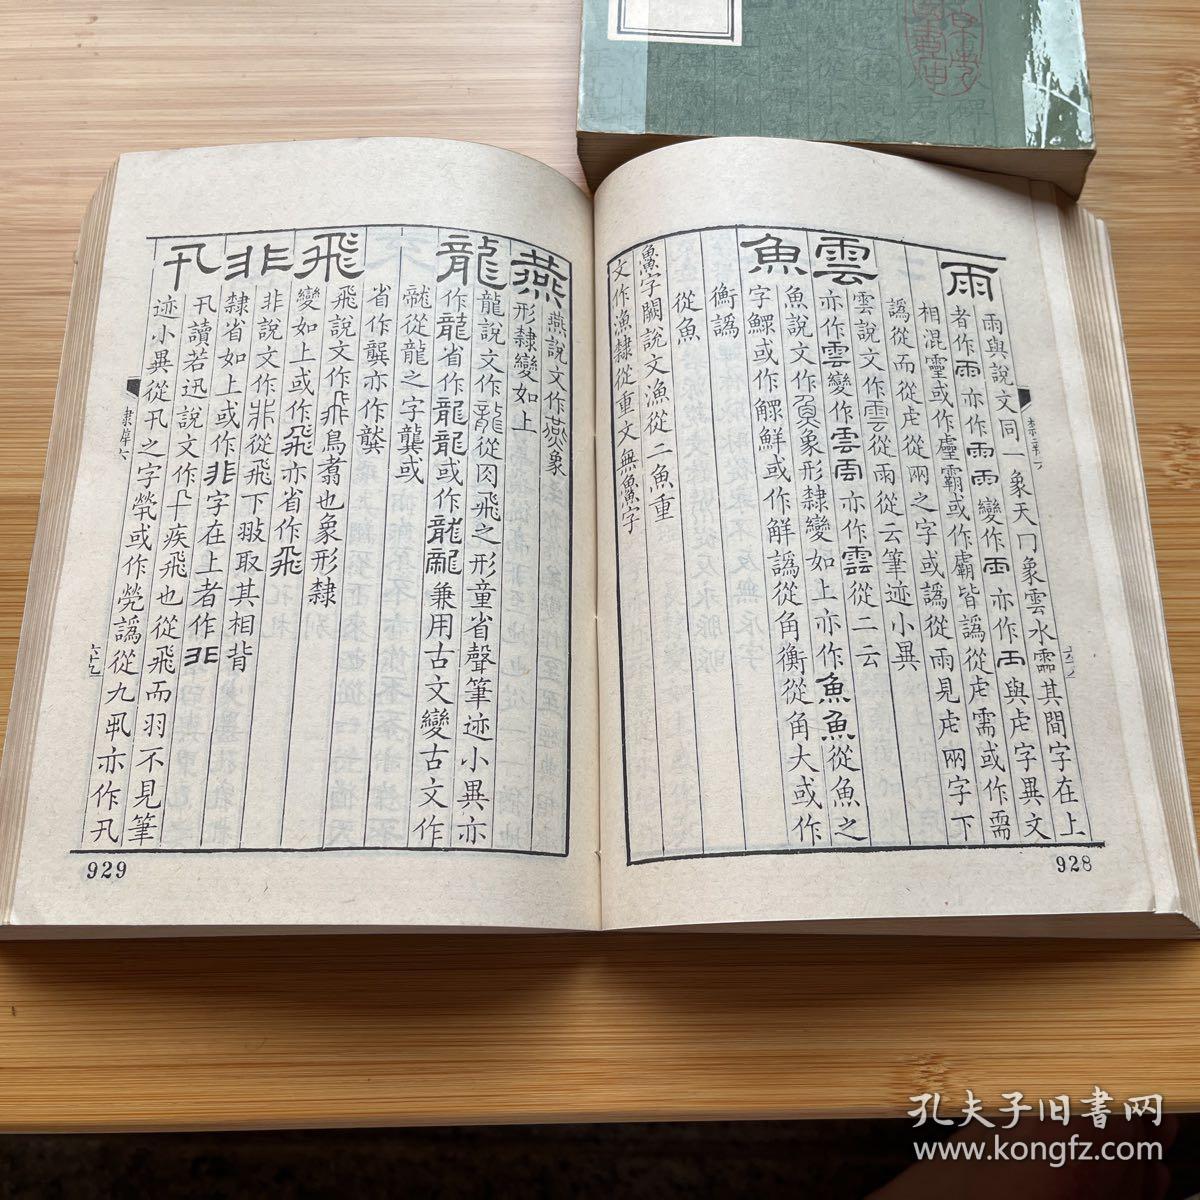 雨
雨與說文同一象天冂象雲水霝其間字在上
者作雨亦作雨雨變作雨亦作与虍字異文
相混霻或作霾霸或作虜皆譌從虍需或作需
譌從而從虍從兩之字或譌從雨見虍兩字下
雲
雲說文作雲從雨從云筆迹小異
亦作雲變作雲雲亦作雲從二云
魚
魚說文作𩵋象形隸變如上亦作魚魚從魚之
字鰥或作鰥鮮或作鮮譌從角衡從角大或作
衡譌
從魚
𩺰字闕說文漁從二魚重
文作漁隸從重文無𩺰字
928
燕
燕說文作燕象
形隸變如上
龍
龍說文作龍從肉飛之形童省聲筆迹小異亦
作龍省作龍龍或作龍龍兼用古文變古文作
龍從龍之字龔或
省作龔亦作龔
飛
飛說文作飛鳥翥也象形隸
變如上或作飛亦省作飛
非
非說文作非從飛下翄取其相背
隸省如上或作非字在上者作非
卂
卂讀若迅說文作卂疾飛也從飛而羽不見筆
迹小異從卂之字煢或作煢譌從九虱亦作卂
隸辨六
929
孔夫子旧書网
www.kongfz.com